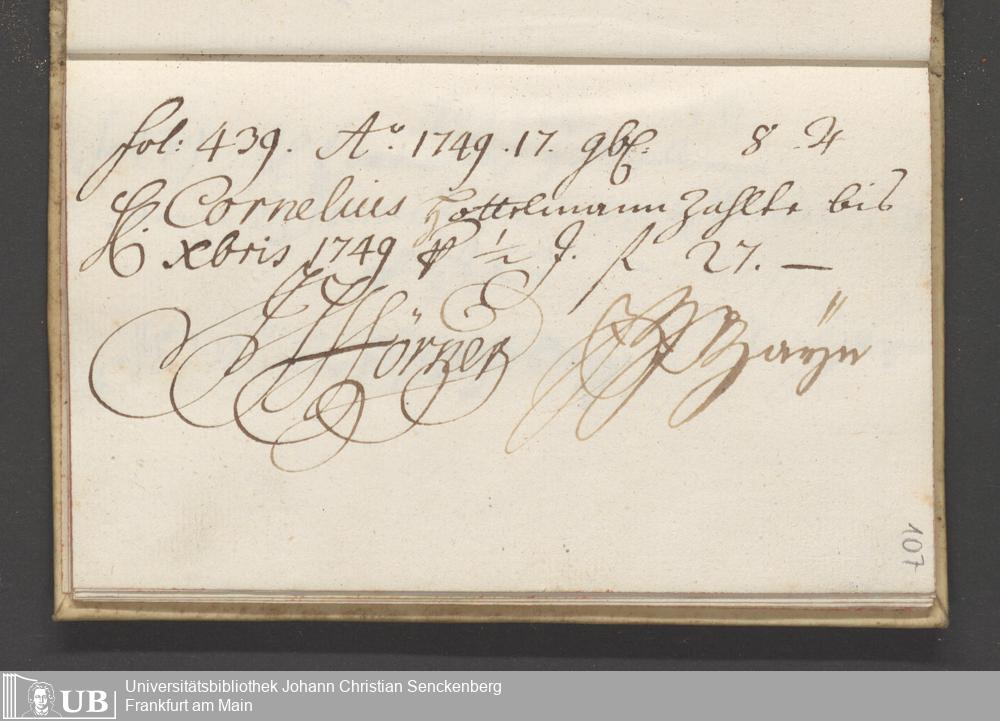 fol: 439. Aº. 1749. 17. 9br. 8
H. Cornelius Hottelmann Zahlte bis
Xbris 1749 ℔ ½ J. f 27. —
Hörner Bäÿn
107
UB
Universitätsbibliothek Johann Christian Senckenberg
Frankfurt am Main